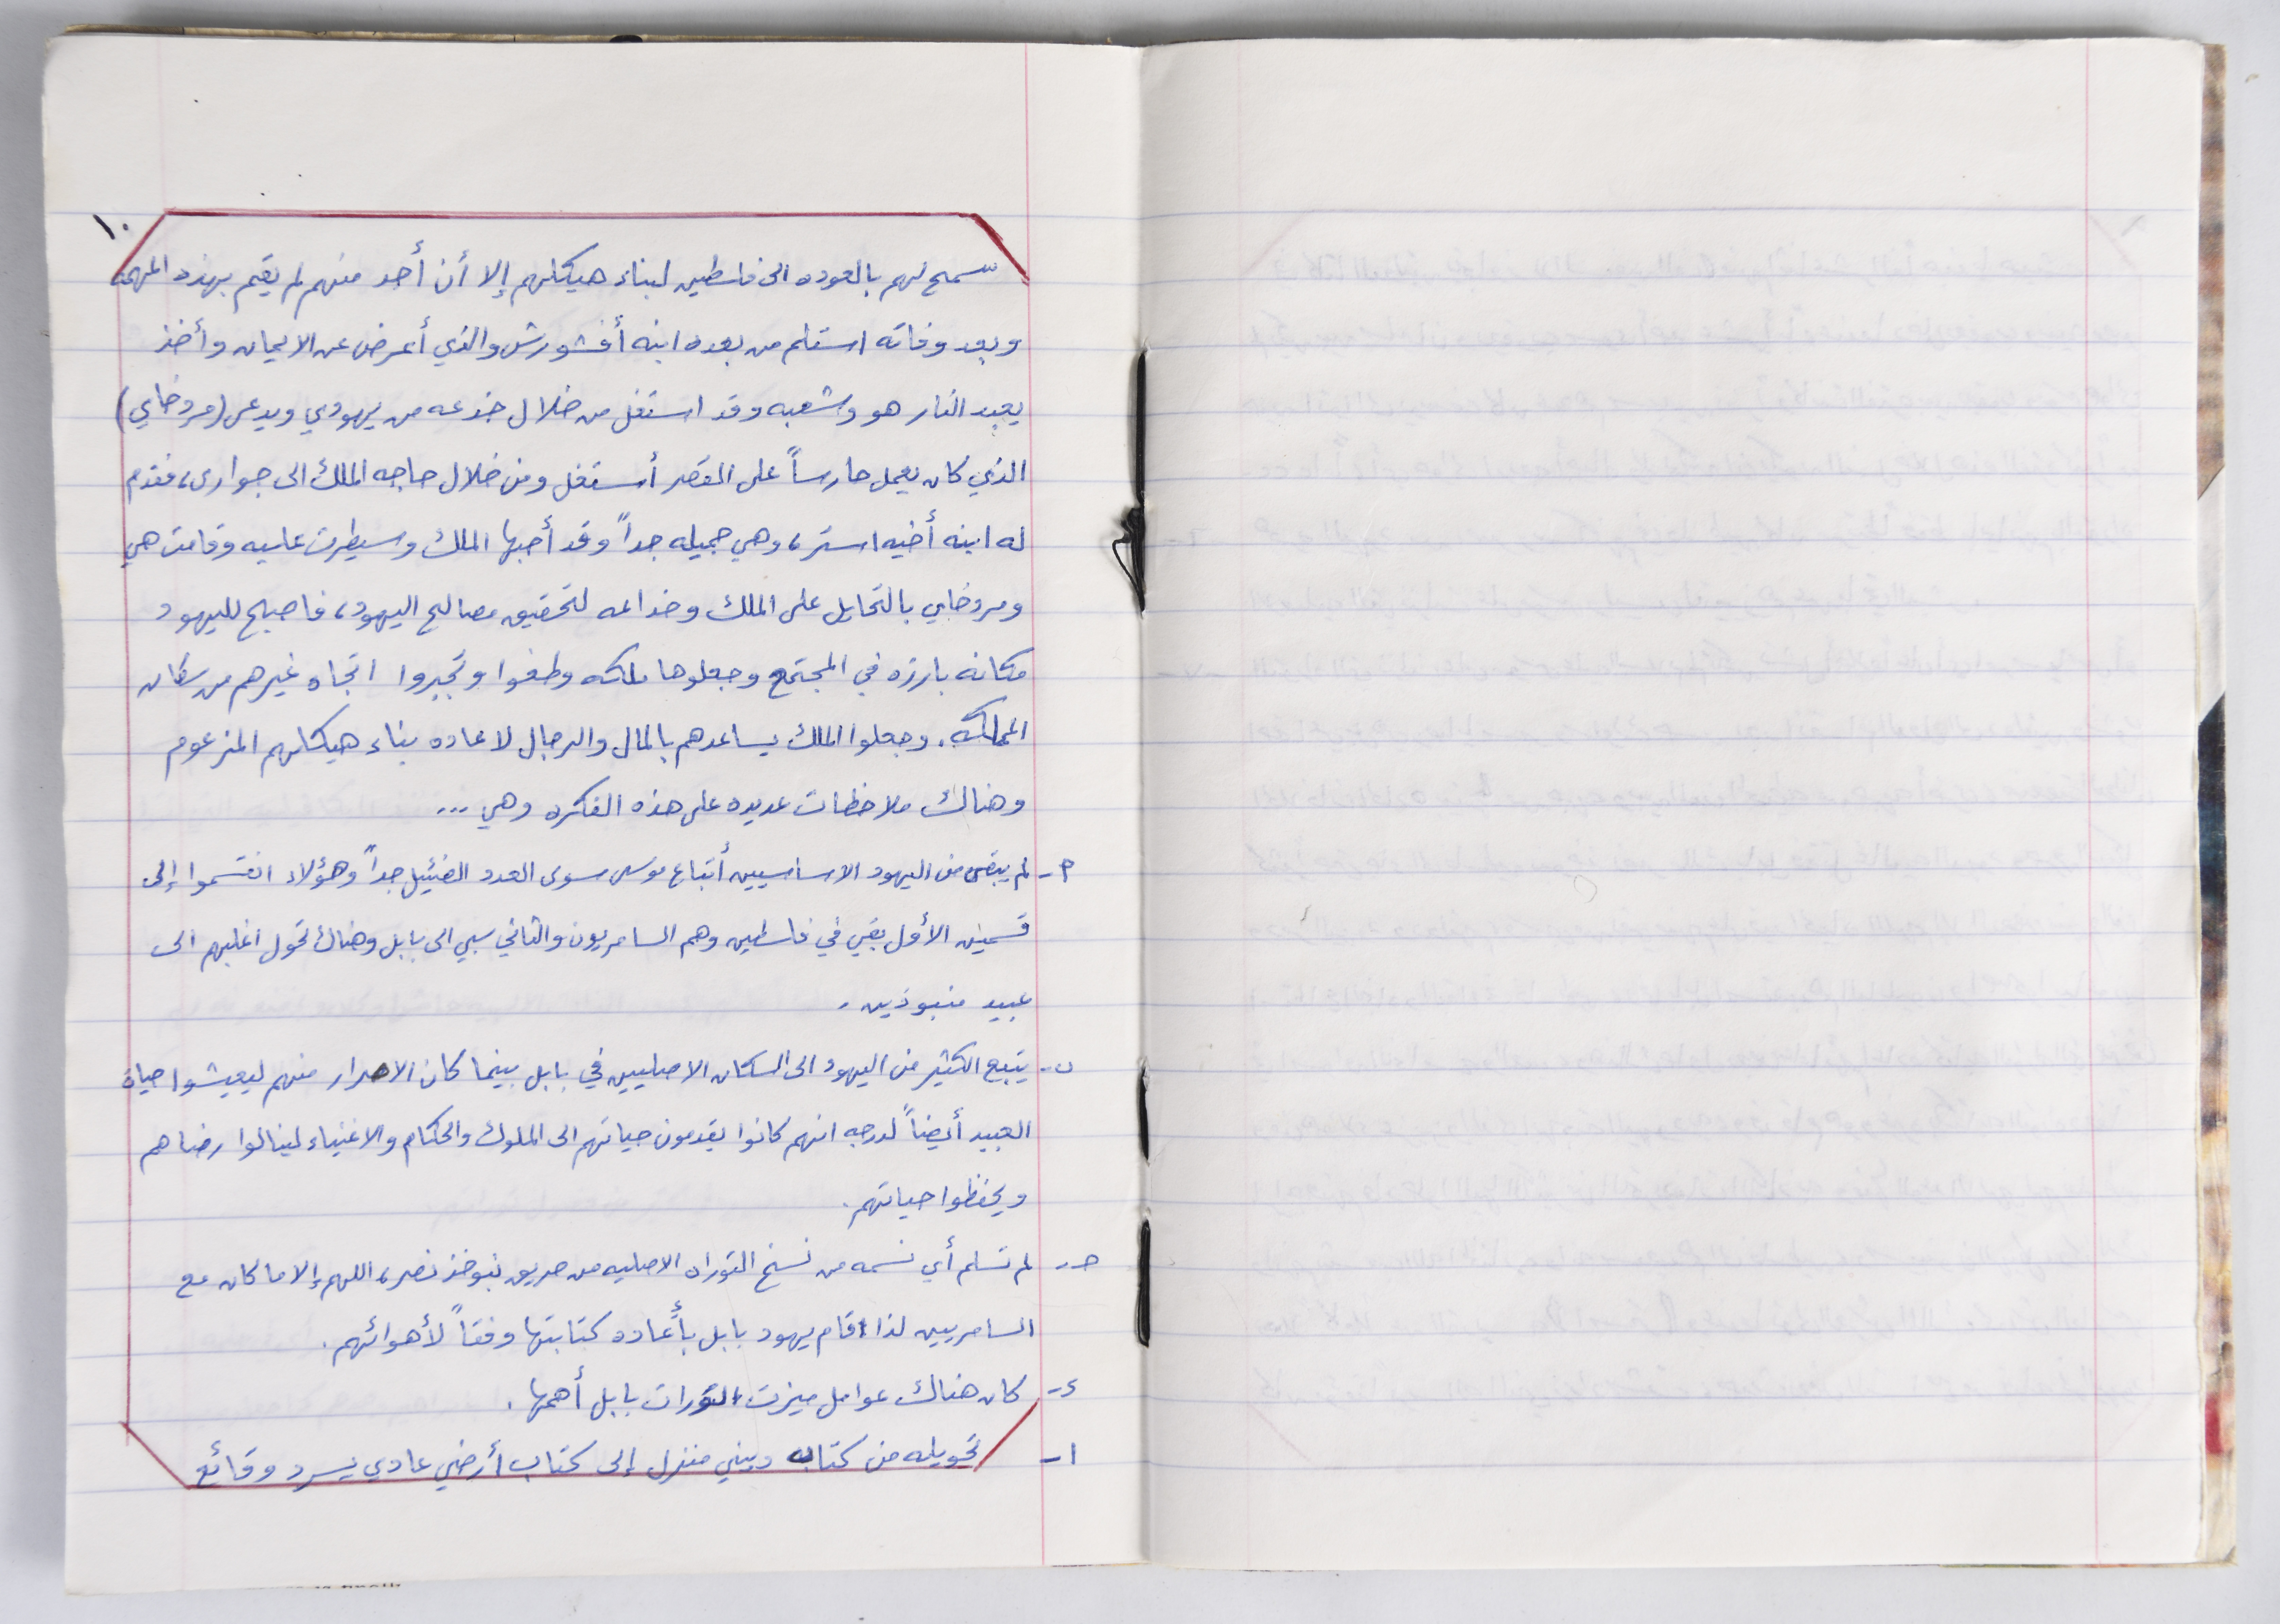 ١٠
سمح لهم بالعوده الى فلسطين لبناء هيكلهم إلا أن أحد منهم لم يقم بهذه المهمه
وبعد وفاته استلم من بعده ابنه أفشورش والذي أعرض عن الايمان وأخذ
يعبد النار هو وشعبه وقد استغل من خلال خدعه من يهودي ويدعى (مردخاي)
الذي كان يعمل حارساً على القصر أستغل ومن خلال حاجه الملك الى جواري، فقدم
له ابنه أخيه استر، وهي جميله جداً وقد أحبها الملك وسيطرت عليه وقامت هي
ومردخاي بالتحايل على الملك وخداعه لتحقيق مصالح اليهود، فاصبح لليهود
مكانه بارزه في المجتمع وجعلوها ملكه وطغوا وتجبروا اتجاه غيرهم من سكان
المملكه. وجعلوا الملك يساعدهم بالمال والرجال لاعاده بناء هيكلهم المزعوم
وهناك ملاحظات عديده على هذه الفكره وهي ...
٢- لم يبقى من اليهود الاساسيين أتباع موسى سوى العدد الضئيل جداً وهؤلاء انقسموا إلى
قسمين الأول بقي في فلسطين وهم السامريون والثاني سبي الى بابل وهناك تحول اغلبهم الى
عبيد منبوذين.
ن- يتبع الكثير من اليهود الى السكان الاصليين في بابل بينما كان الاصرار منهم ليعيشوا حياة
العبيد أيضاً لدرجه انهم كانوا يقدمون حياتهم الى الملوك والحكام والاغنياء لينالوا رضاهم
ويحفظوا حياتهم.
حـ- لم تسلم أي نسمه من نسخ التوراه الاصليه من حريق نبوخذ نصر، اللهم إلا ما كان مع
السامريين لذا قام يهود بابل بأعاده كتابتها وفقاً لأهوائهم.
ء- كان هناك عوامل ميزت التورات بابل أهمها.
١- تحويله من كتابه ديني منزل إلى كتاب أرضي عادي يسرد وقائع